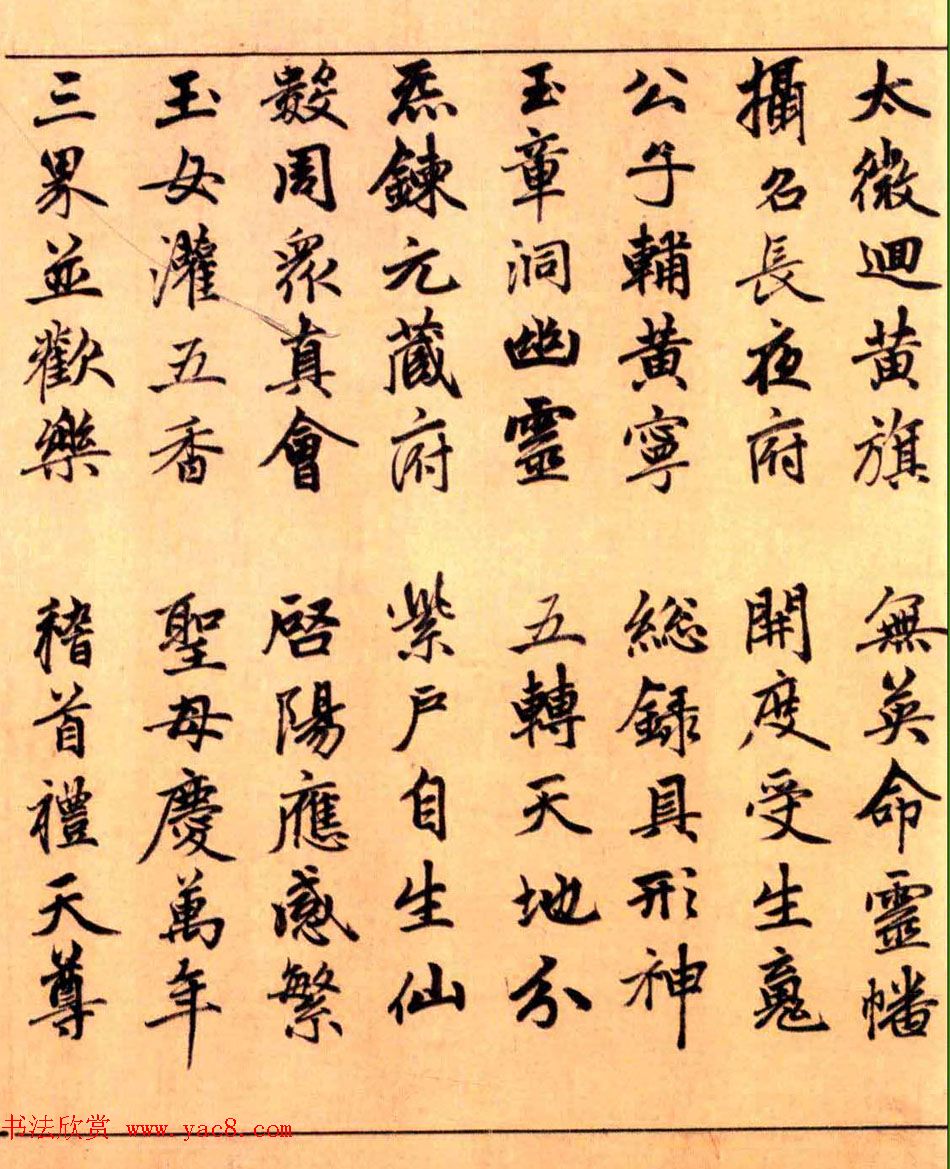 太微迴黃旗 無英命靈幡
攝名長夜府 開度受生䰟
公子輔黃寧 総錄具形神
玉章洞幽靈 五轉天地分
炁鍊元藏府 紫戶自生仙
數周眾真會 啓陽應感繁
玉女灌五香 聖母慶萬年
三界並歡樂 稽首禮天尊
书法欣赏 www.yac8.com